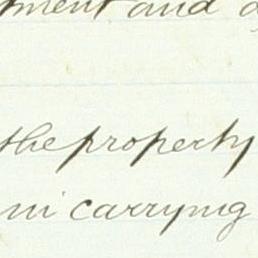 ment and
the property
in carrying